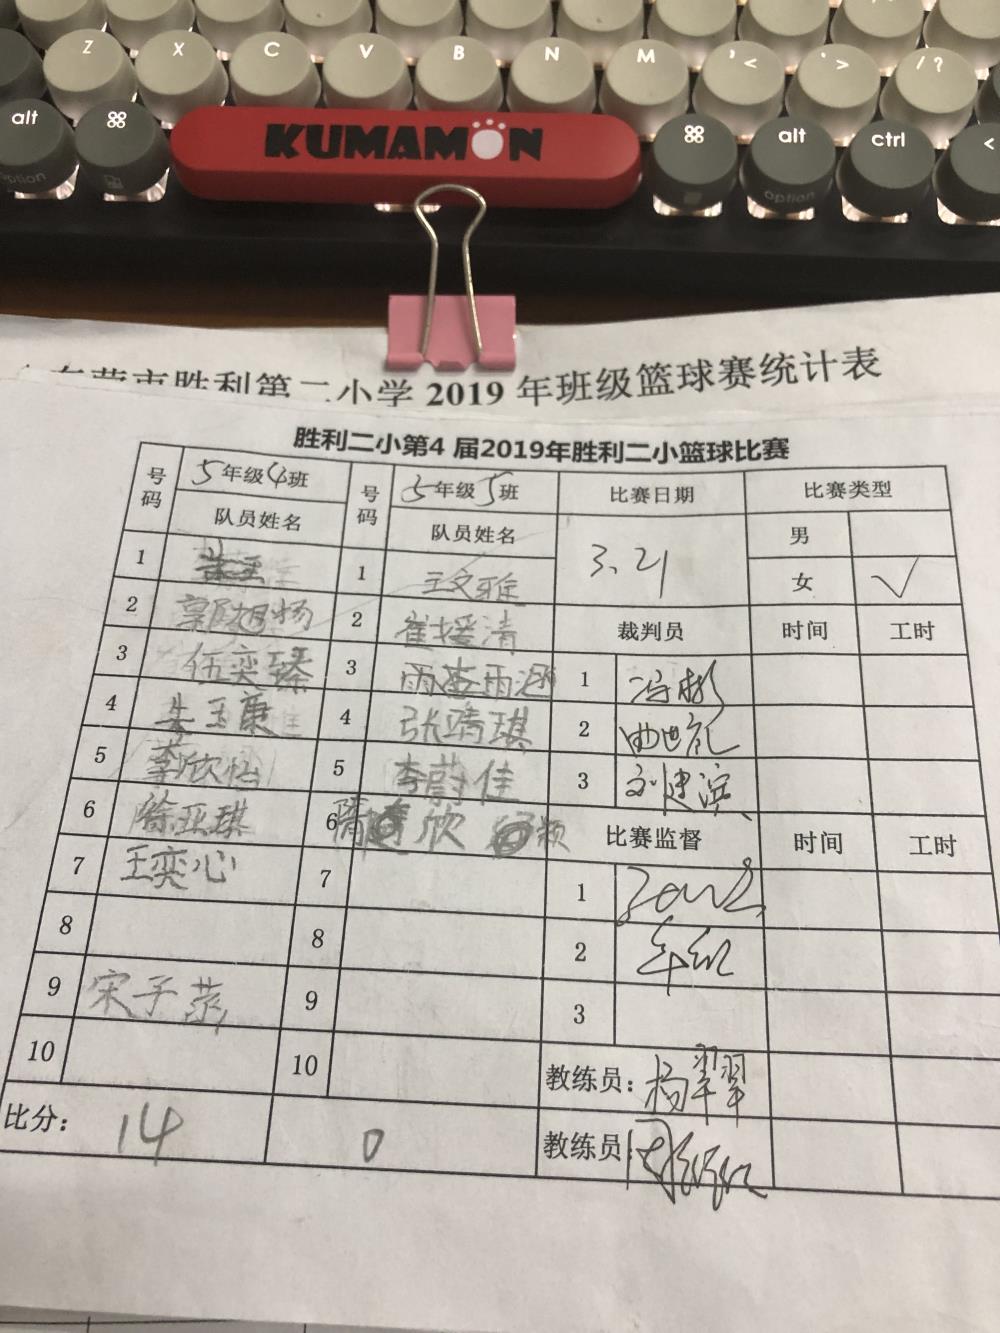 Z X C V B N M , < . > / ?
alt ⌘ KUMAMON ⌘ alt ctrl <
option option
胜利第二小学 2019 年班级篮球赛统计表
胜利二小第4 届2019年胜利二小篮球比赛
号码 5年级4班 号码 5年级5班 比赛日期 比赛类型
队员姓名 队员姓名 3.21 男
1 1 王文雅 女 √
2 郭旭杨 2 崔援清 裁判员 时间 工时
3 伍奕臻 3 雨涵 1
4 朱玉康 4 张靖琪 2 曲世礼
5 李欣怡 5 李蔚佳 3 刘建滨
6 徐亚琪 6 隋 欣颖 比赛监督 时间 工时
7 王奕心 7 1
8 8 2
9 宋子燕 9 3
10 10 教练员: 杨翠翠
比分: 14 0 教练员: